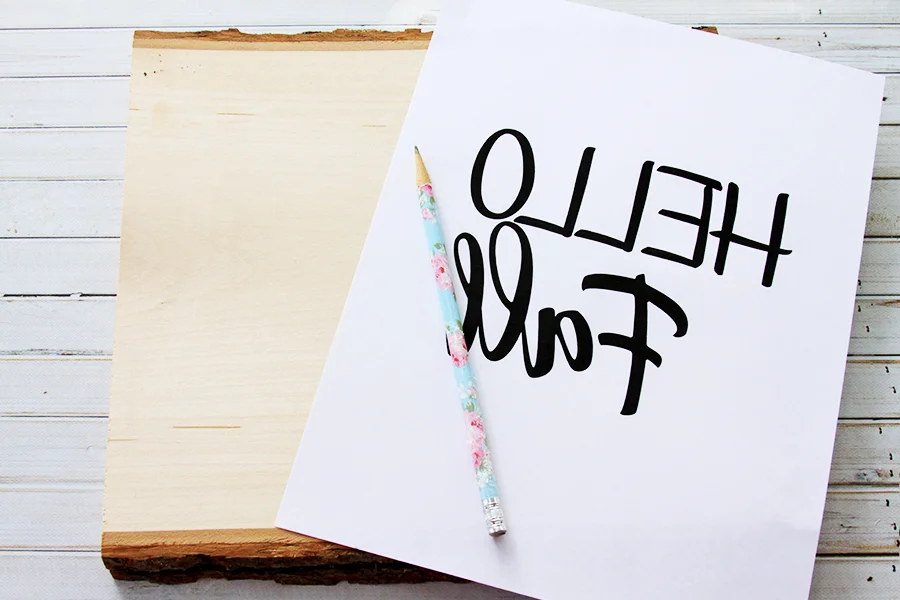 HELLO
Fall